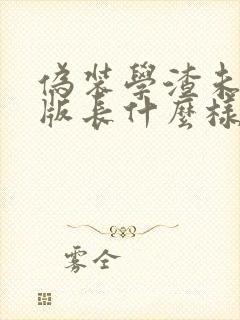 偽裝學渣未
版長什麼樣
雾全